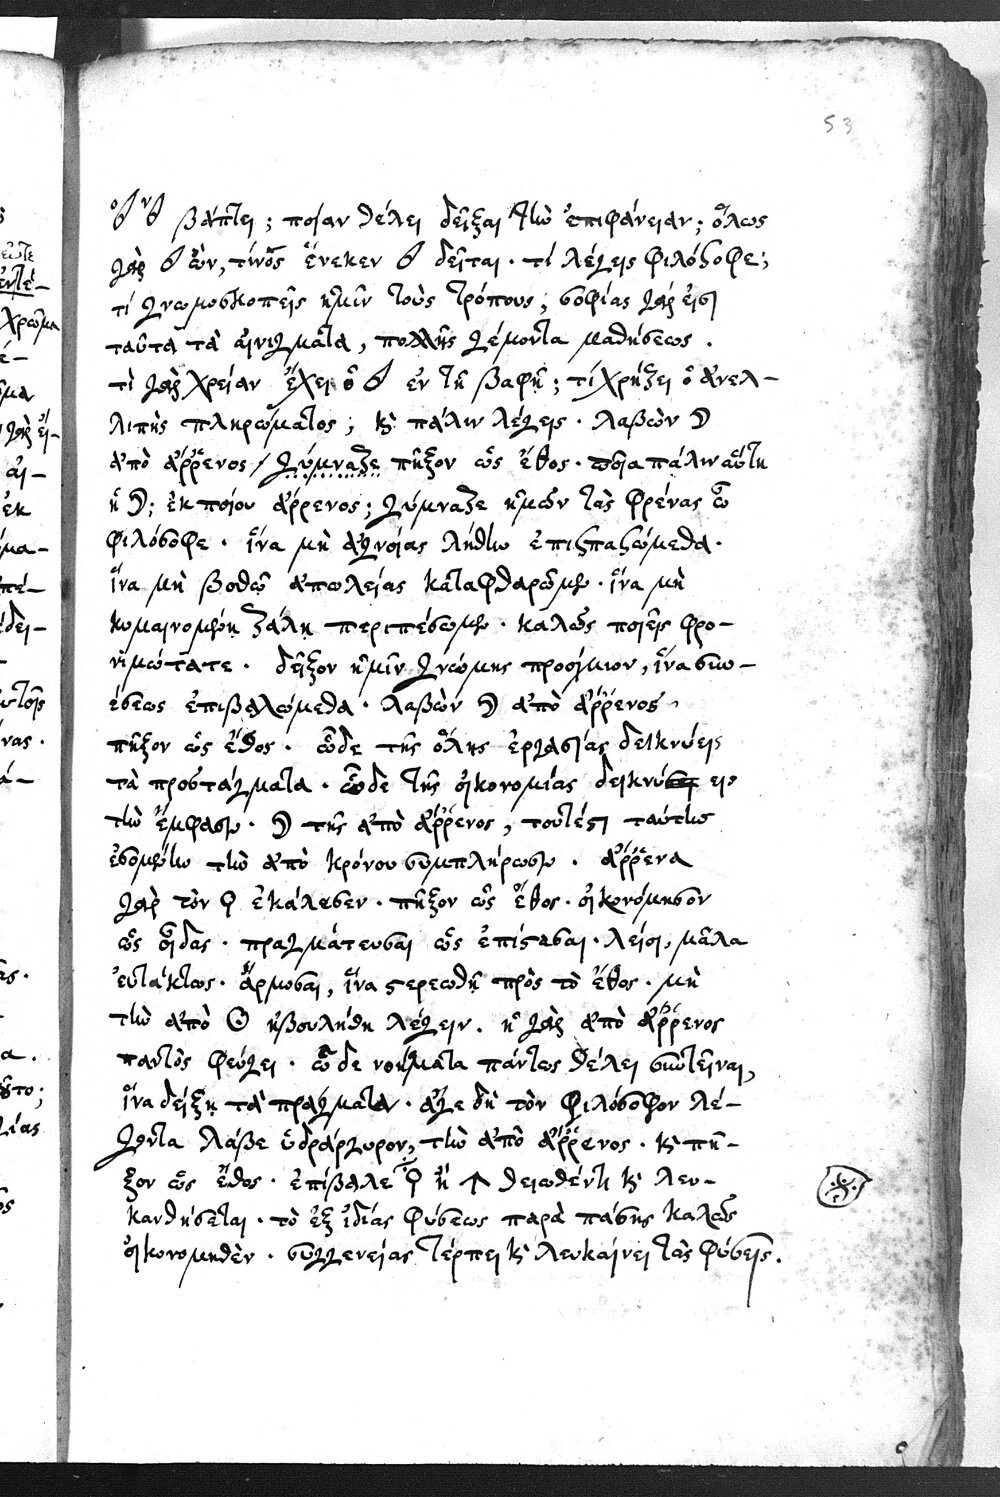 53
βάπτει; ποίαν θέλει δεῖξαι τὴν ἐπιφάνειαν; ὅλως
γὰρ ὢν, τίνος ἕνεκεν δεῖται. τί λέγεις φιλόσοφε;
τί γνωμοσκοπεῖς ἡμῖν τοὺς τρόπους; σοφίας γάρ εἰσι
ταῦτα τὰ αἰνίγματα, πολλῆς γέμοντα μαθήσεως.
τὶ γὰρ χρείαν ἔχει ὁ ἐν τῇ βαφῇ; τί χρήζει ὁ ἀνελ-
λιπὴς πληρώματος; κ πάλιν λέγεις. λαβὼν ☽
ἀπὸ ἄρρενος / γύμναζε πῆξον ὡς ἔθος. ποία πάλιν αὕτη
ἡ ☽; ἐκ ποίου ἄρρενος; γύμναζε ἡμῶν τὰς φρένας ὦ
φιλόσοφε. ἵνα μὴ ἀγνοίας λήθην ἐπισπασώμεθα.
ἵνα μὴ βοθῶ ἀπωλείας καταφθαρῶμεν. ἵνα μὴ
κυμαινομένῃ ζάλῃ περιπέσωμεν. καλῶς ποιεῖς φρο-
νιμώτατε. δεῖξον ἡμῖν γνώμης προοίμιον, ἵνα συν-
έσεως ἐπιβαλώμεθα. λαβὼν ☽ ἀπὸ ἄρρενος
πῆξον ὡς ἔθος. ὧδε τῆς ὅλης ἐργασίας δεικνύεις
τὰ προστάγματα. ὧδε τῆς οἰκονομίας δεικνύεις
τὴν ἔμφασιν. ☽ τῆς ἀπὸ ἄρρενος, τουτέστι ταύτην
ἐσομένην τὴν ἀπὸ κρόνου συμπλήρωσιν. ἄρρενα
γὰρ τὸν ἐκάλεσεν. πῆξον ὡς ἔθος. οἰκονόμησον
ὡς οἶδας. πραγμάτευσαι ὡς ἐπίστασαι. λείοι, μάλα
εὐτάκτως. ἅρμοσαι, ἵνα στερεωθῇ πρὸς τὸ ἔθος. μὴ
τὴν ἀπὸ ☉ ἠβουλήθη λέγειν. ἡ γὰρ ἀπὸ ἄρρενος
παντὸς φεύγει. ὧδε νοήματα πάντως θέλει συντεῖναι,
ἵνα δείξῃ τὰ πράγματα. ἄγε δὴ τὸν φιλόσοφον λέ-
γοντα λάβε ὑδράργυρον, τὴν ἀπὸ ἄρρενος. κ πῆ-
ξον ὡς ἔθος. ἐπίβαλε ♀ ἢ θειωθέντι κ λευ-
κανθήσεται. τὸ ἐξ ἰδίας φύσεως παρὰ πάσης καλῶς
οἰκονομηθὲν. συγγενείας τέρπει κ λευκαίνει τὰς φύσεις.